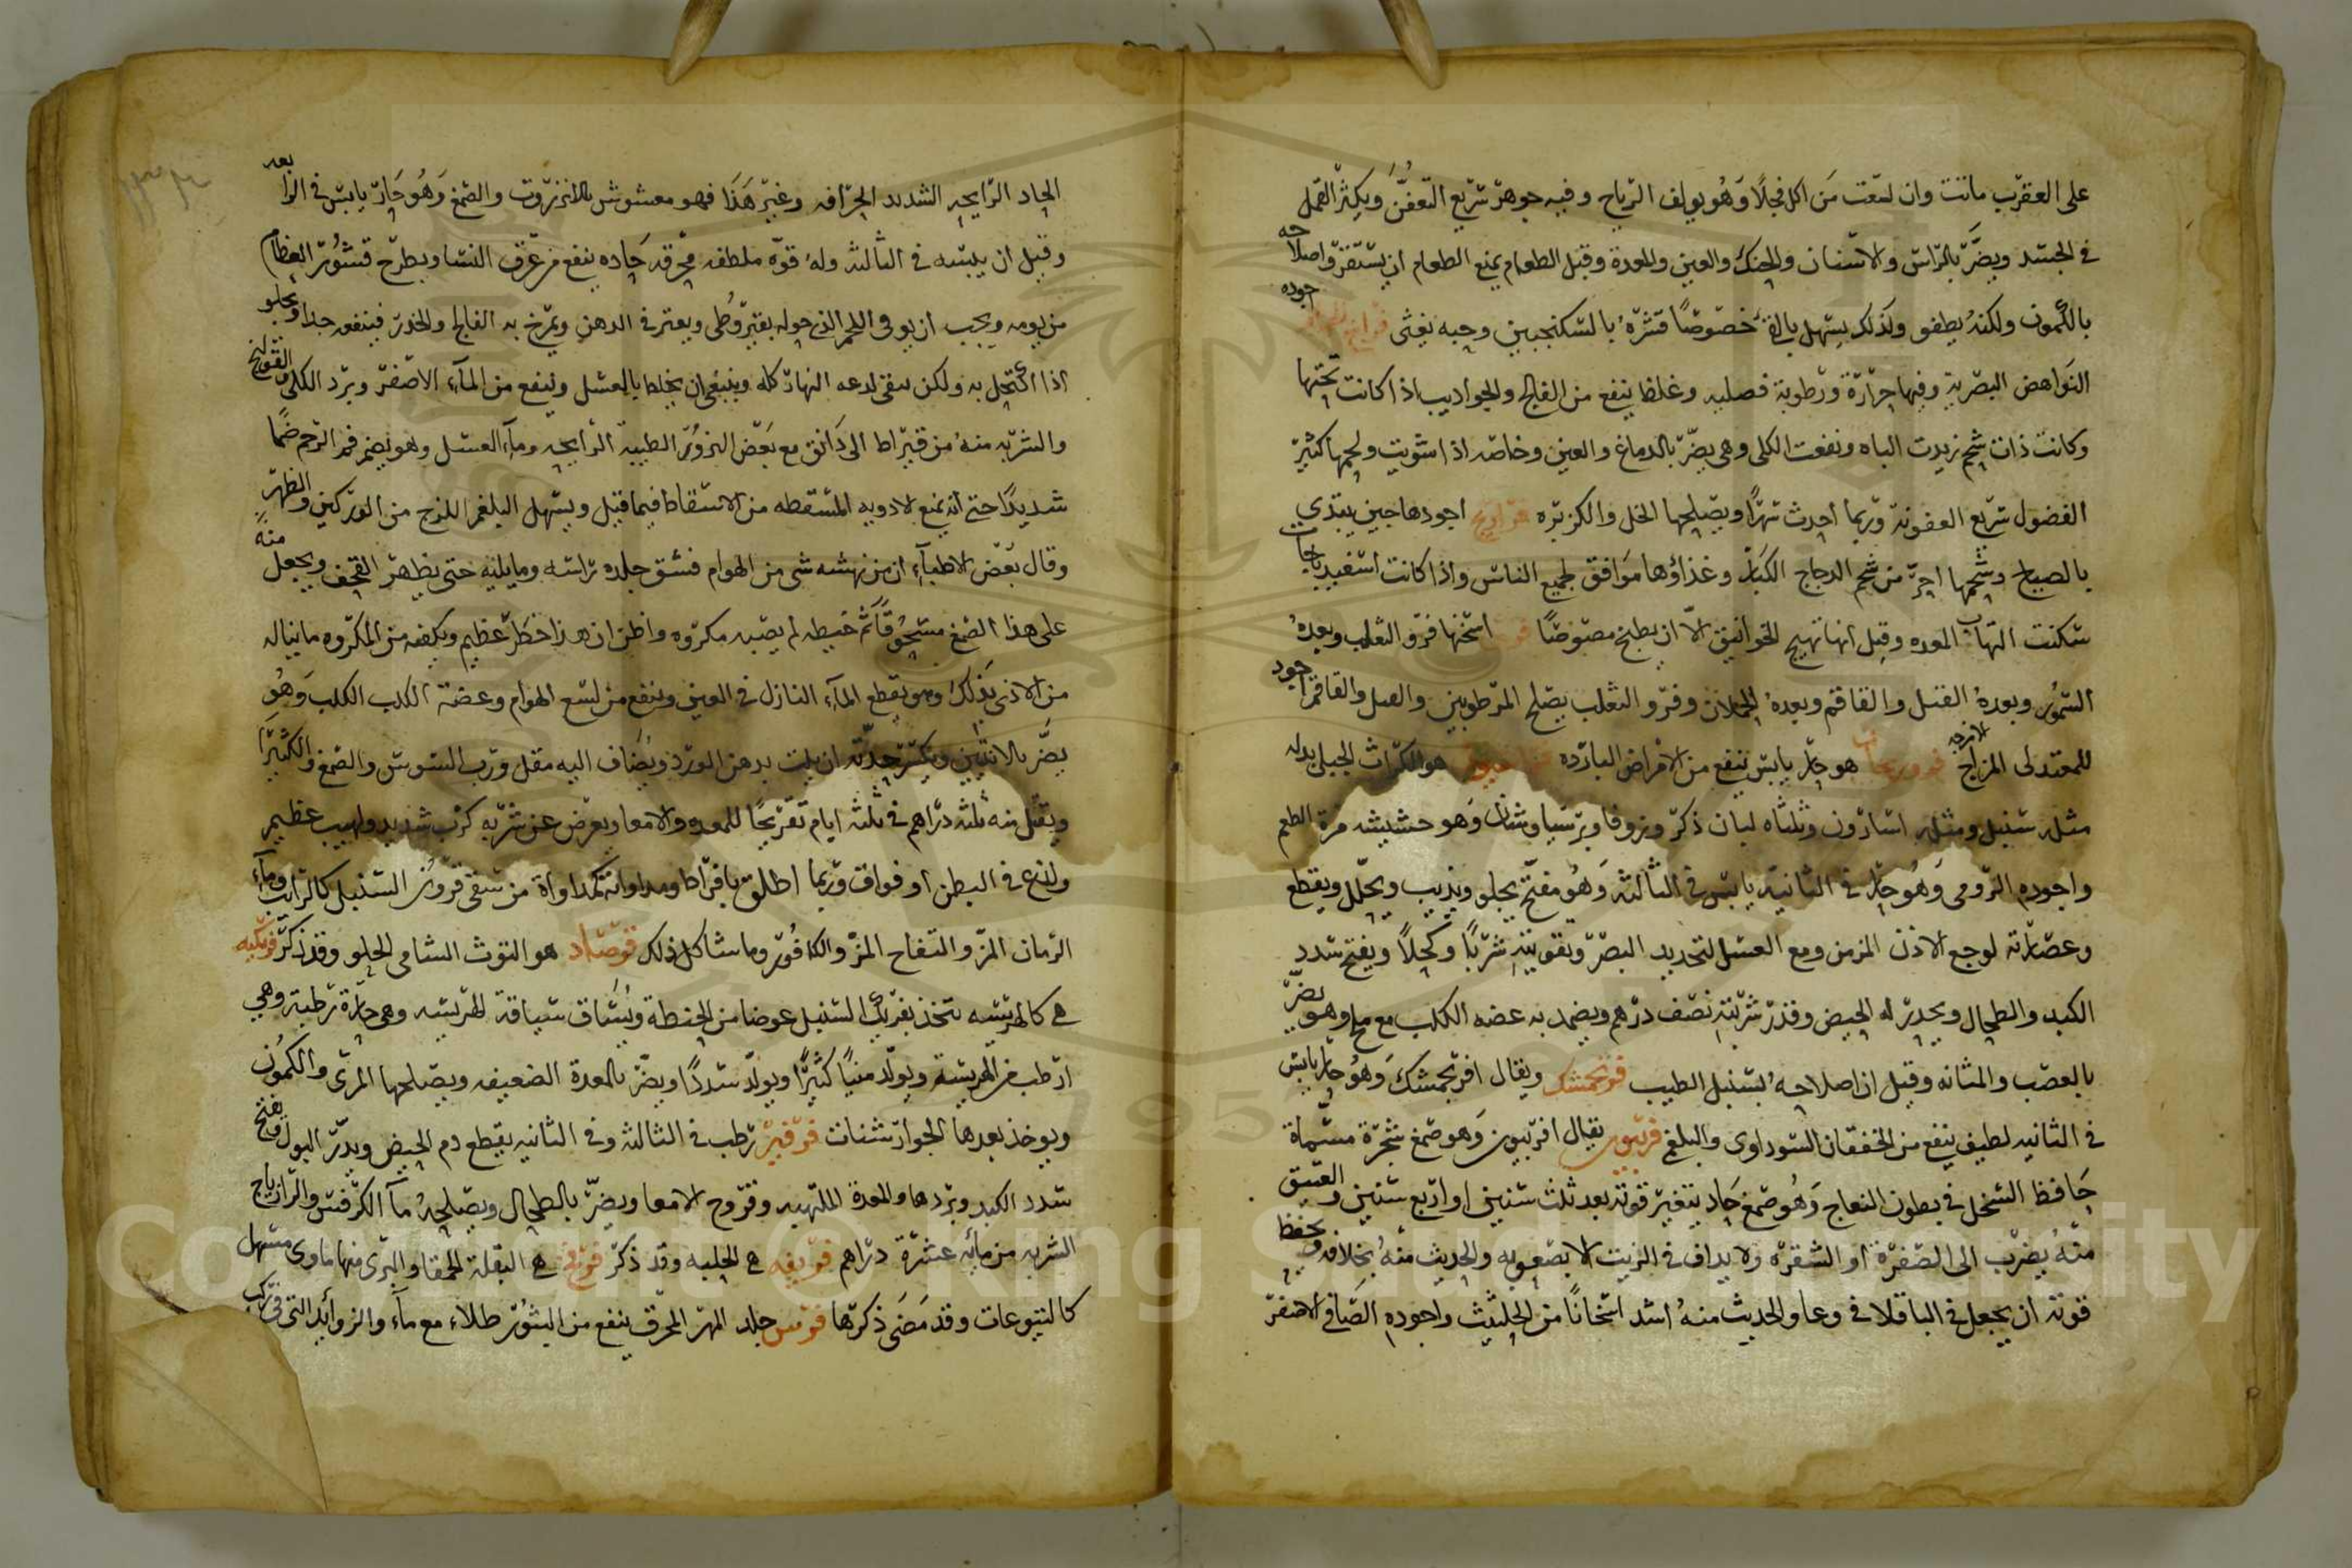 على العقرب ماتت وان لسعت من اكل فجلًا وهو يولف الرياح وفيه جوهر سريع التعفن ويكثر القمل
في الجسد ويضر بالراس والاسنان والحنك والعين والمعدة وقبل الطعام يمنع الطعام ان يستقر واصلاحه
بالكمون ولكنه يطفو ولذلك يسهل بالقئ خصوصًا قشره بالسكنجبين وحبه يغثى فراخ الحمام اجوده
النواهض البصرية وفيها حرارة ورطوبة فصليه وغلظ ينفع من الفالج والجواديب اذا كانت تحتها
وكانت ذات شحم زيدت الباه ونفعت الكلى وهى يضر بالدماغ والعين وخاصه اذا شويت ولحمها كثير
الفضول سريع العفونة وربما احدث سهرًا ويصلحها الخل والكزبره فراريج اجودها حين يبتدي
بالصياح وشحمها احر من شحم الدجاج الكبار وغذاؤها موافق لجميع الناس واذا كانت اسفيدباجات
سكنت التهاب المعده وقيل انها تهيج الخوانيق الا ان يطبخ مصوصًا فرو اسخنها فرو الثعلب وبعده
السمور وبعده الفنك والقاقم وبعده الحملان وفرو الثعلب يصلح المرطوبين والفنك والقاقم اجود
للمعتدلى المزاج فرو هو حار يابس ينفع من الامراض البارده هو الكراث الجبلى بدله
مثله سنبل ومثله اسارون وثلثاه لبان ذكر وزوفا وبرسياوشان وهو حشيشه مرة الطعم
واجوده الرومى وهو حار في الثانية يابس في الثالثة وهو مفتح يجلو ويذيب ويحلل ويقطع
وعصارته لوجع الاذن المزمن ومع العسل لتحديد البصر وتقويته شربًا وكحلًا ويفتح سدد
الكبد والطحال ويحدر الحيض وقدر شربته نصف درهم ويضمد به عضه الكلب مع ملح وهو يضر
بالعصب والمثانه وقيل ان اصلاحه لسنبل الطيب فرنجمشك ويقال افرنجمشك وهو حار يابس
في الثانيه لطيف ينفع من الخفقان السوداوى والبلغم فربيون يقال افربيون وهو صمغ شجرة مسماة
حافظ النخل في بطون النعاج وهو صمغ حاد يتغير قوته بعد ثلث سنين او اربع سنين والعتيق
منه يضرب الى الصفرة او الشقره ولا يداف في الزيت الا بصعوبه والحديث منه بخلافه ويحفظ
قوته ان يجعل في الباقلا في وعا والحديث منه اشد اسخانًا من الحلتيث واجوده الصافي الاصفر
الحاد الرايحه الشديد الحرافه وغير هذا فهو مغشوش بالانزروت والصمغ وهو حار يابس في الرابعه
وقيل ان يبسه في الثالثه وله قوه ملطفه محرقه حاده ينفع من عرق النسا ويطرح قشور العظام
من يومه ويجب ان يوقى اللحم الذى حوله بقيروطى ويعتر في الدهن ويمرخ به الفالج والخدر فينفعه جدا ويجلو
اذا اكتحل به ولكن يبقى لدعه النهار كله وينبغى ان يخلط بالعسل وينفع من المآء الاصفر وبرد الكلى والقولنج
والشربه منه من قيراط الى دانق مع بعض البزور الطيبة الرايحه ومآء العسل وهو يضم فم الرحم ضمًا
شديدًا حتى انه يمنع الادويه المسقطه من الاسقاط فيما قيل ويسهل البلغم اللزج من الوركين والظهر
وقال بعض الاطبآء ان من نهشه شى من الهوام فشق جلده راسه وما يليه حتى يظهر القحف ويجعل منه
على هذا الصمغ مسحوقًا ثم خيطه لم يصبه مكروه واظن ان هذا خطر عظيم ويكفه من المكروه ما يناله
من الاذى بذلك وهو يقطع المآء النازل في العين وينفع من لسع الهوام وعضة الكلب الكلب وهو
يضر بالانثيين ويكسر حدته ان يلت بدهن الورد ويضاف اليه مقل ورب السوس والصمغ والكثيرا
ويقتل منه ثلثه دراهم في ثلثه ايام تقريحًا للمعده والامعا ويعرض عن شربه كرب شديد ولهيب عظيم
ولذع في البطن او فواق وربما اطلق بافراط ومداواته كمداواة من سقى قرون السنبل كالرايب ومآء
الرمان المز والتفاح المز والكافور وما شاكل ذلك فرصاد هو التوث الشامى الحلو وقد ذكر فريكيه
هي كالهريسه تتخذ بفريك السنبل عوضا من الحنطة ويساق سياقة الهريسه وهى حارة رطبة وهي
ارطب من الهريسة ويولد منيًا كثيرًا ويولد سددًا ويضر بالمعدة الضعيفه ويصلحها المرى والكمون
ويوخذ بعدها الجوارشنات فرفير رطب في الثالثه وفى الثانيه يقطع دم الحيض ويدر البول ويفتح
سدد الكبد وبردها والمعدة الملتهبه وقروح الامعا ويضر بالطحال ويصلحه مآ الكرفس والرازياج
الشربه من مايه عشرة دراهم فريقه هي الحلبه وقد ذكر فرفخ هي البقلة الحمقا والبرى منها ماوى مسهل
كاليتوعات وقد مضى ذكرها فرس جلد المهر المحرق ينفع من البثور طلاء مع مآء والزوائد التى في ركب